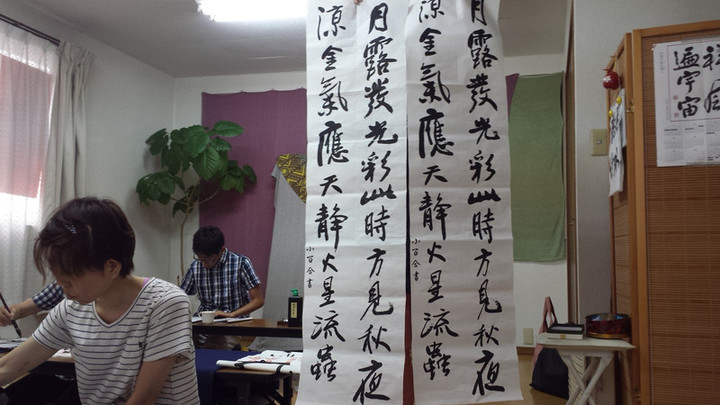 遍宇宙
月露發光彩此時方見秋夜
涼金氣應天静火星流蟲
小百合書
月露發光彩此時方見秋夜
涼金氣應天静火星流蟲
小百合書